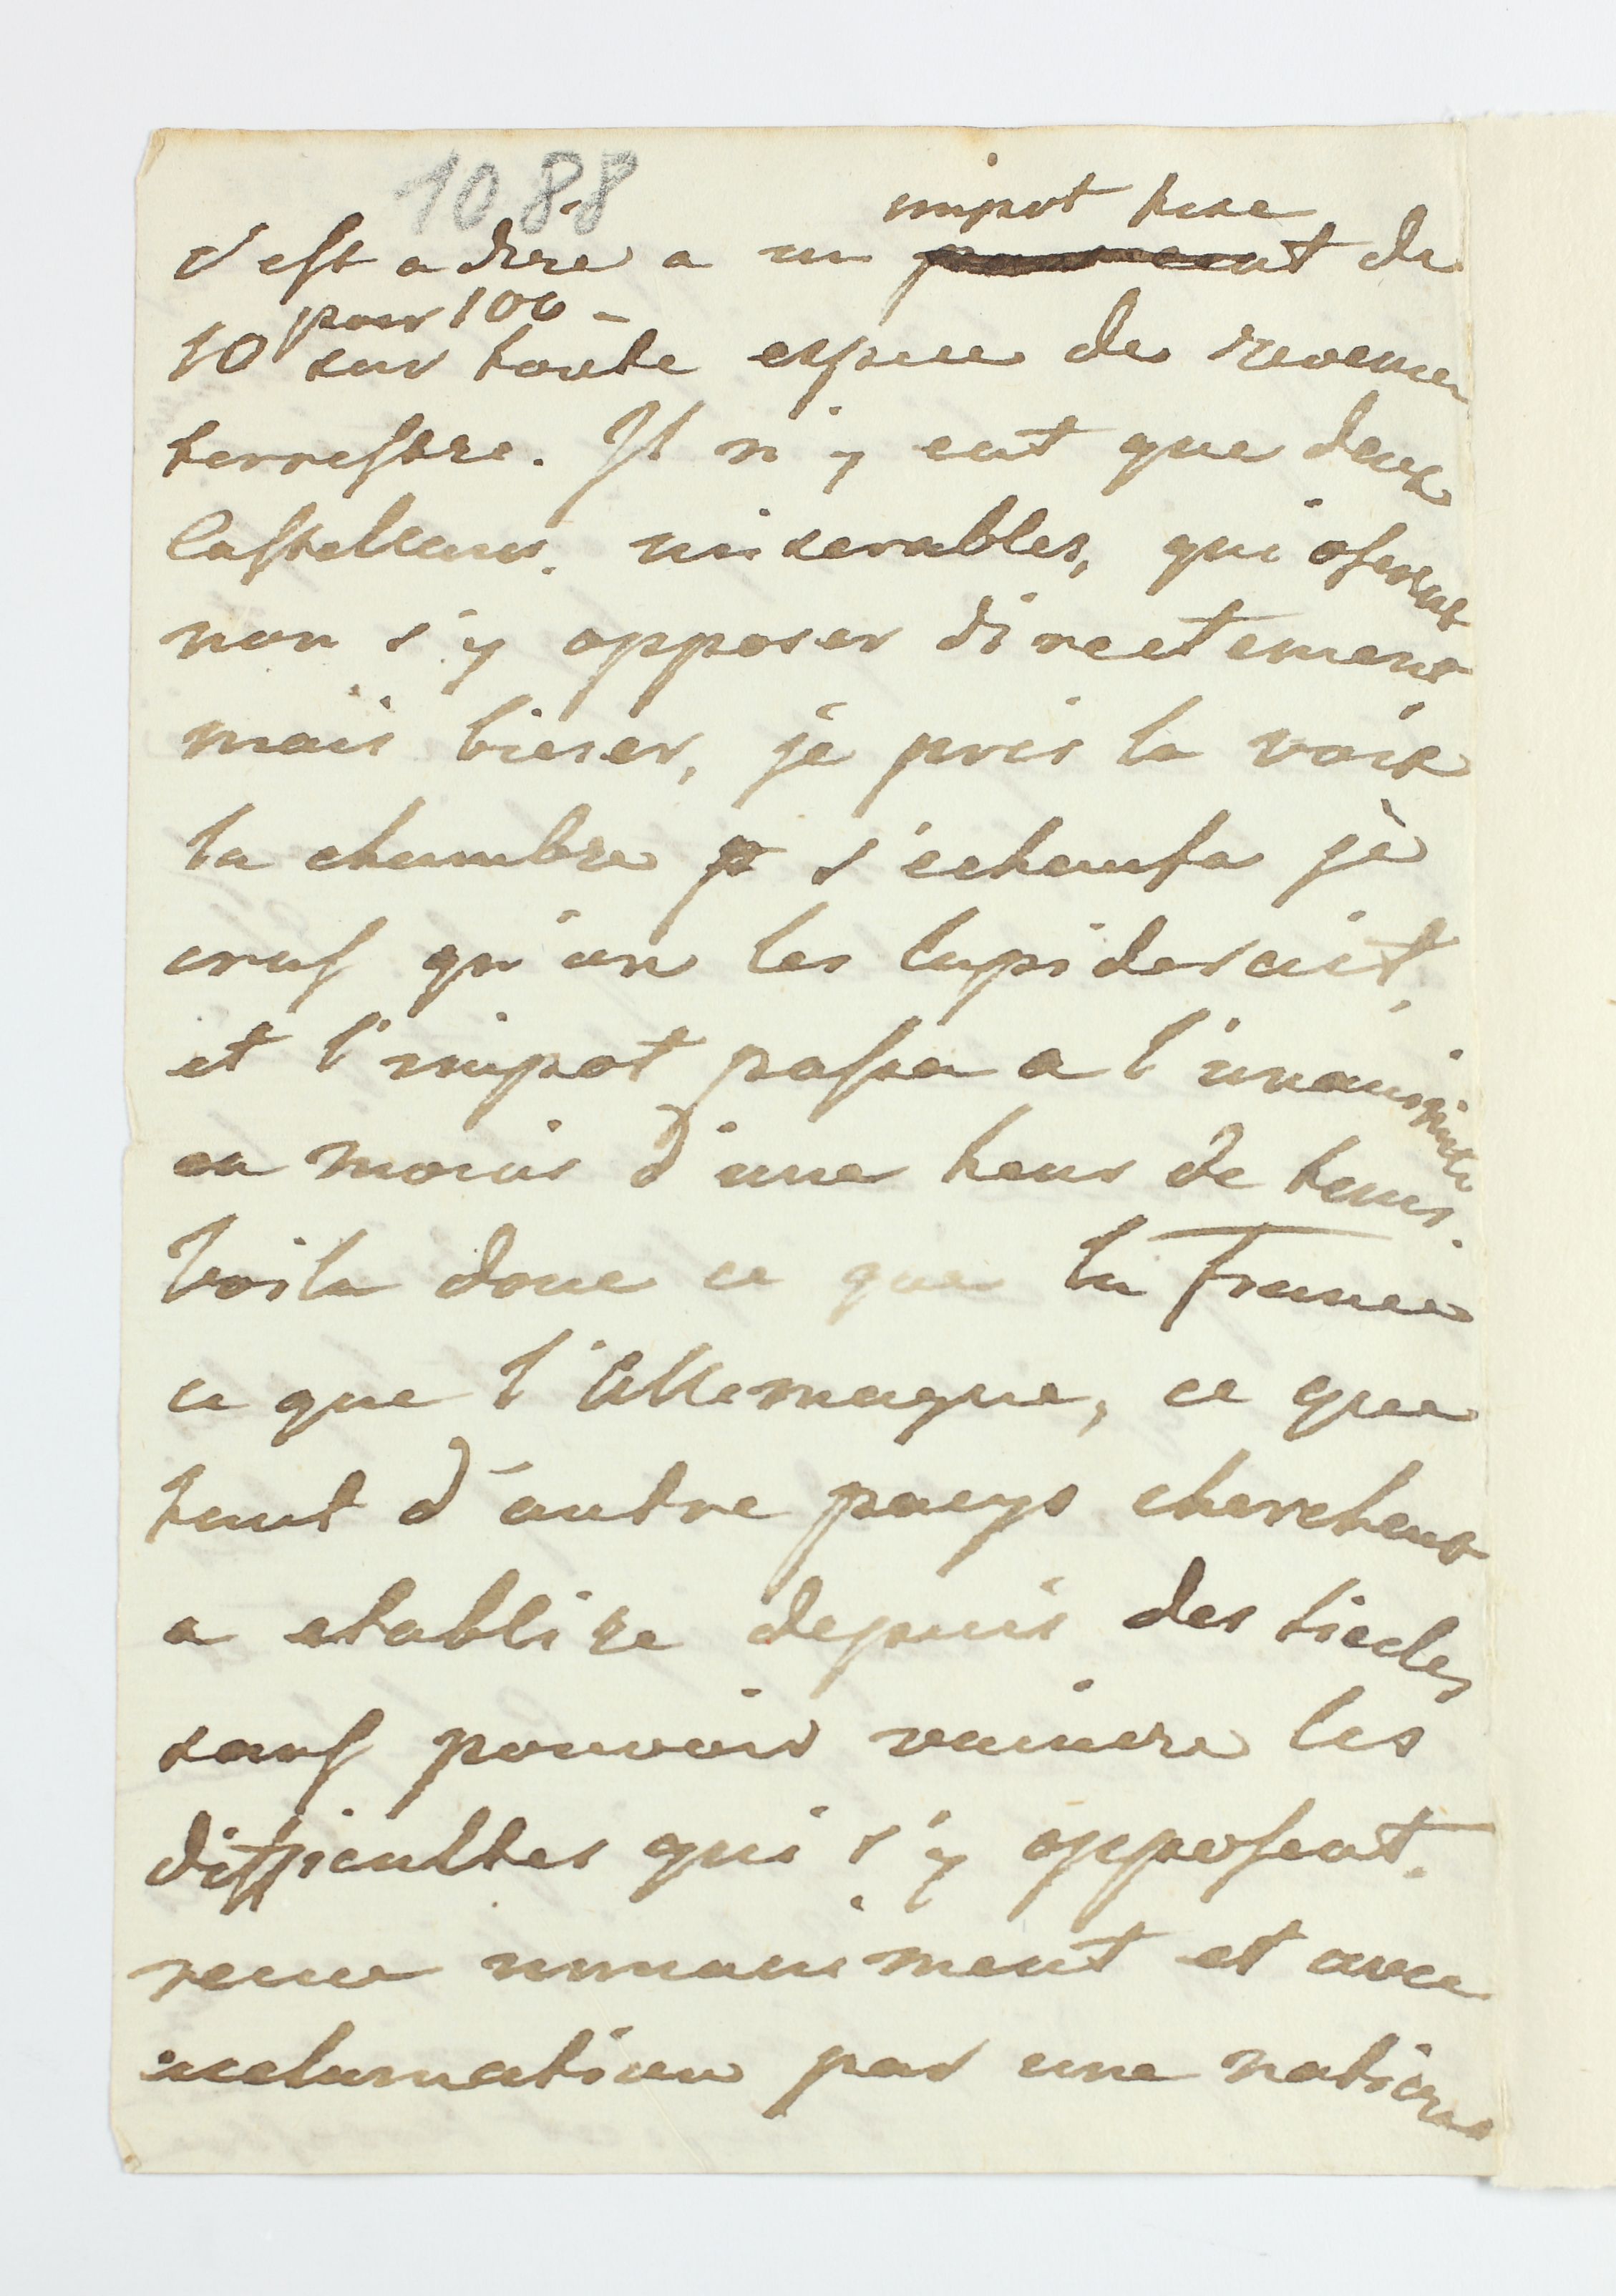 1088
impot fixe
c'est a dire a un de
pour 100 -
10 sur toute espece de revenu
terrestre. Il n'y eut que deux
Castellans. miserables, qui oserent
non s'y opposer directement,
mais bieser, je pris la voix
la chambre s'echaufa je
crus qu'on les lapiderait,
et l'impot passa a l'unanimité
en moins d'une heur de tems.
Voila donc ce que la France
ce que l'Allemagne, ce que
tant d'autre pays cherchent
a etablire depuis des siecles
sans pouvoir vaincre les
difficultes qui s'y opposent.
recue unanimement et avec
acclamation par une nation